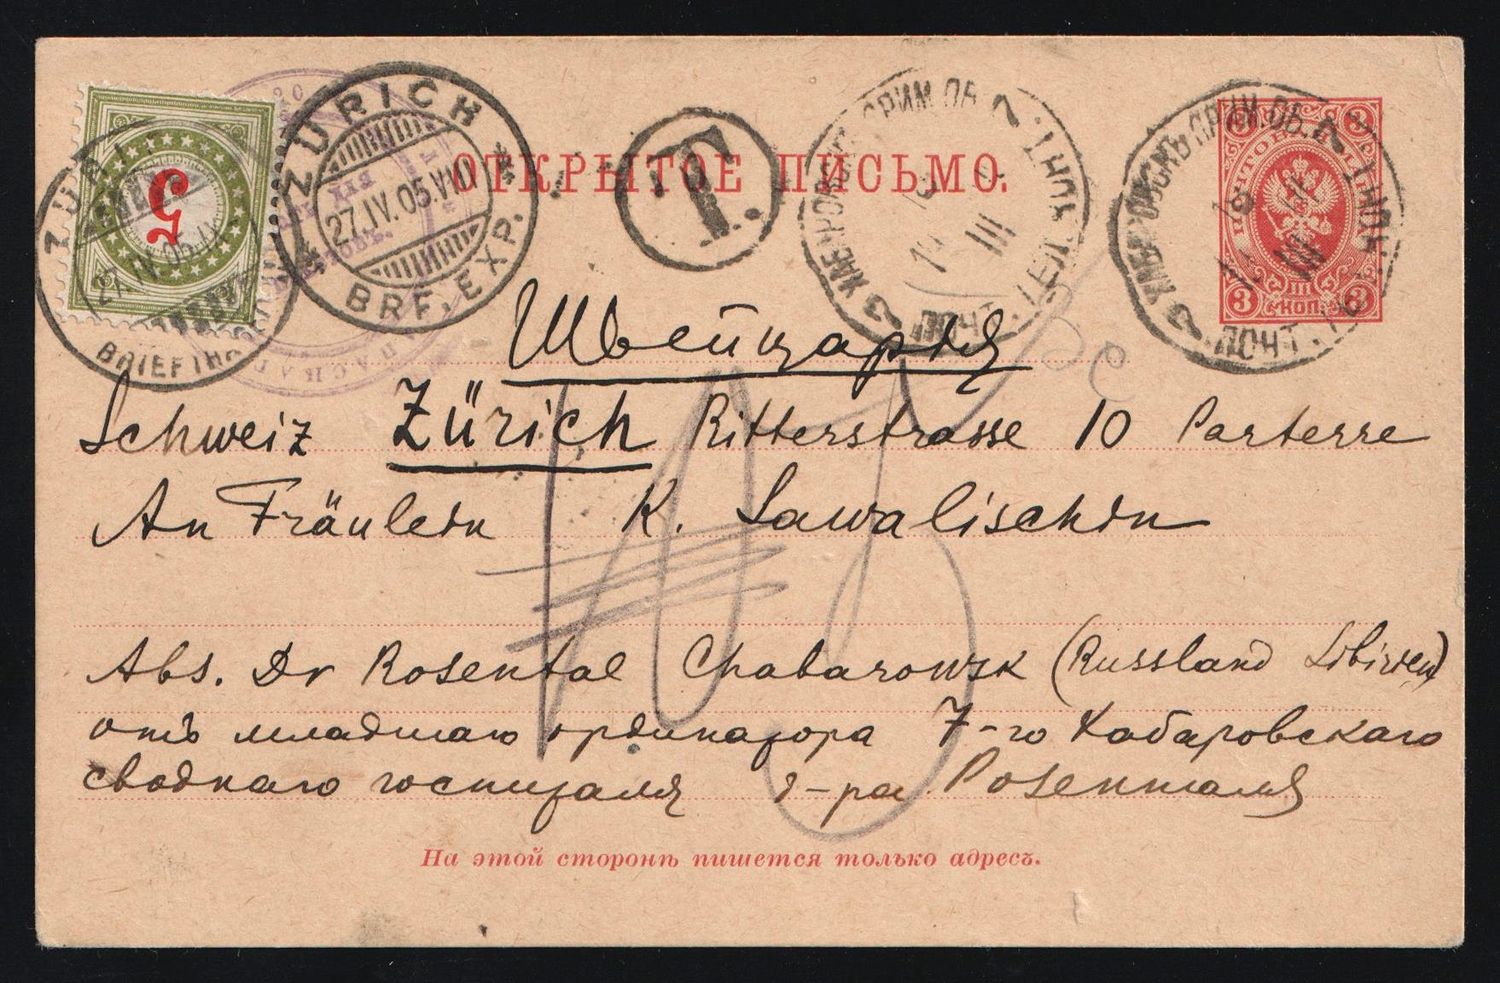 ОТКРЫТОЕ ПИСЬМО.
ZÜRICH
27.IV.05.VIII
BRF. EXP.
T.
5
ZÜRI
27.IV.05
BRIEFTR
ХАБАРОВСКЪ ПРИМ. ОБ.
ПОЧТ. ТЕЛ. КОНТ.
19 III
3
3 КОП. 3
Швейцарія
Schweiz Zürich Ritterstrasse 10 Parterre
An Fräulein K. Sawalischin
10
5
Abs. Dr Rosental Chabarowsk (Russland Sibirien)
отъ младшаго ординатора 7-го Хабаровскаго
своднаго госпиталя д-ра Розенталя
На этой сторонѣ пишется только адресъ.